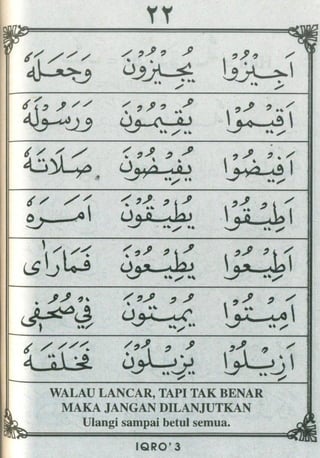 ٢٢
اَجِيْزُوْا يُجِيْزُوْنَ وَجَعَلَهٗ
اَقِيْمُوْا يُقِيْمُوْنَ وَرَسُوْلَهٗ
اَفِيْضُوْا يُفِيْضُوْنَ صَلَاتَهٗ
اَطِيْقُوْا يُطِيْقُوْنَ اَمَرَهٗ
اَطِيْعُوْا يُطِيْعُوْنَ فَمَارَاٰى
اَمِيْتُوْا يُمِيْتُوْنَ فِيْ صُحُفِيْ
اَزِيْلُوْا يُزِيْلُوْنَ فَخَلَقَهٗ
WALAU LANCAR, TAPI TAK BENAR
MAKA JANGAN DILANJUTKAN
Ulangi sampai betul semua.
IQRO' 3